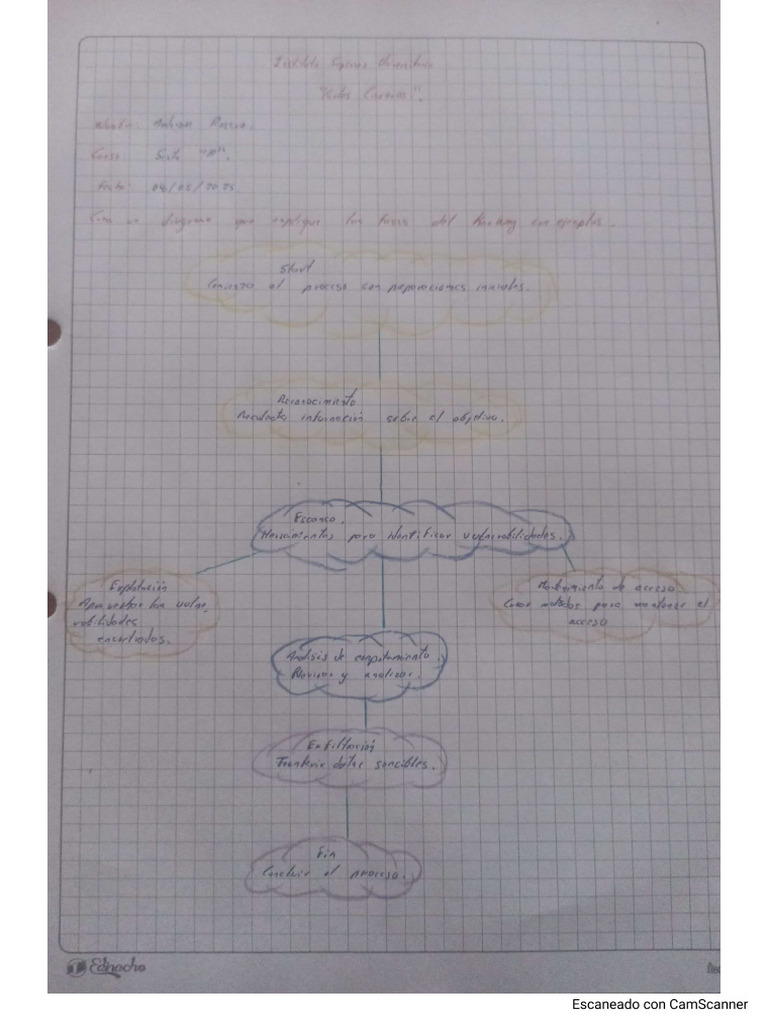 Instituto
Curso: Sexto "A".
Fecha: 04/05/2025
Crea un diagrama que explique las fases del Hacking con ejemplos.
Start
Comienzo el proceso con preparaciones iniciales.
Reconocimiento
Recolecta información sobre el objetivo.
Escaneo.
Herramientas para identificar vulnerabilidades.
Explotación
Aprovechar las vulne
rabilidades
encontradas.
Mantenimiento de acceso.
Crear métodos para mantener el
acceso
Análisis de
Revisar y analizar.
Exfiltración
Transferir datos sencibles.
Fin
Concluir el proceso.
Ednacho
Escaneado con CamScanner